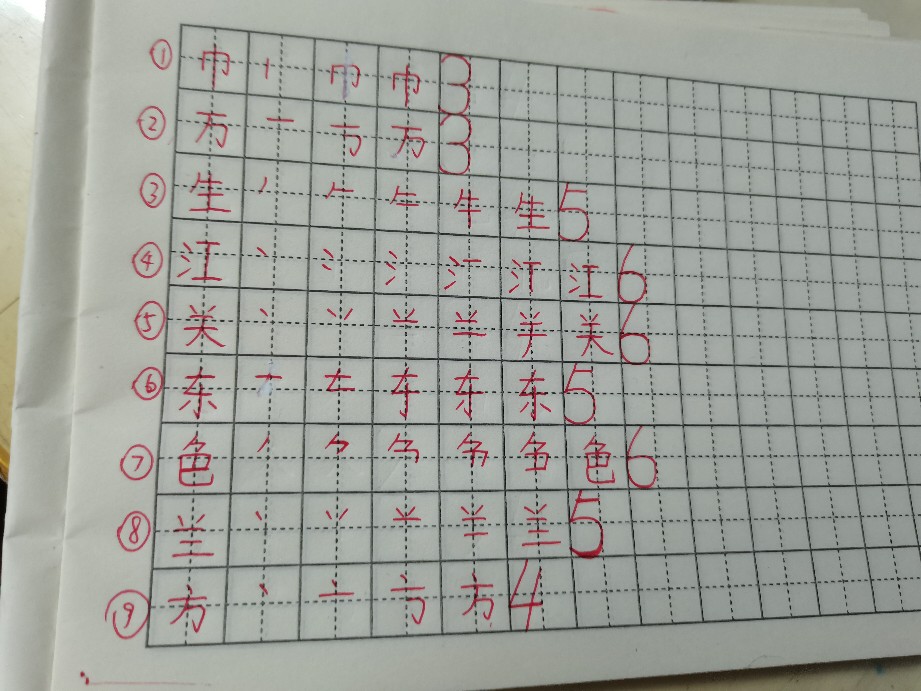 ① 巾 丨 冂 巾 3
② 万 一 丂 万 3
③ 生 丿 𠂉 牛 生 5
④ 江 丶 冫 氵 汀 江 6
⑤ 关 丶 丷 䒑 关 6
⑥ 东 一 东 5
⑦ 色 丿 ⺈ 色 6
⑧ 兰 丶 丷 䒑 兰 5
⑨ 方 丶 亠 方 4